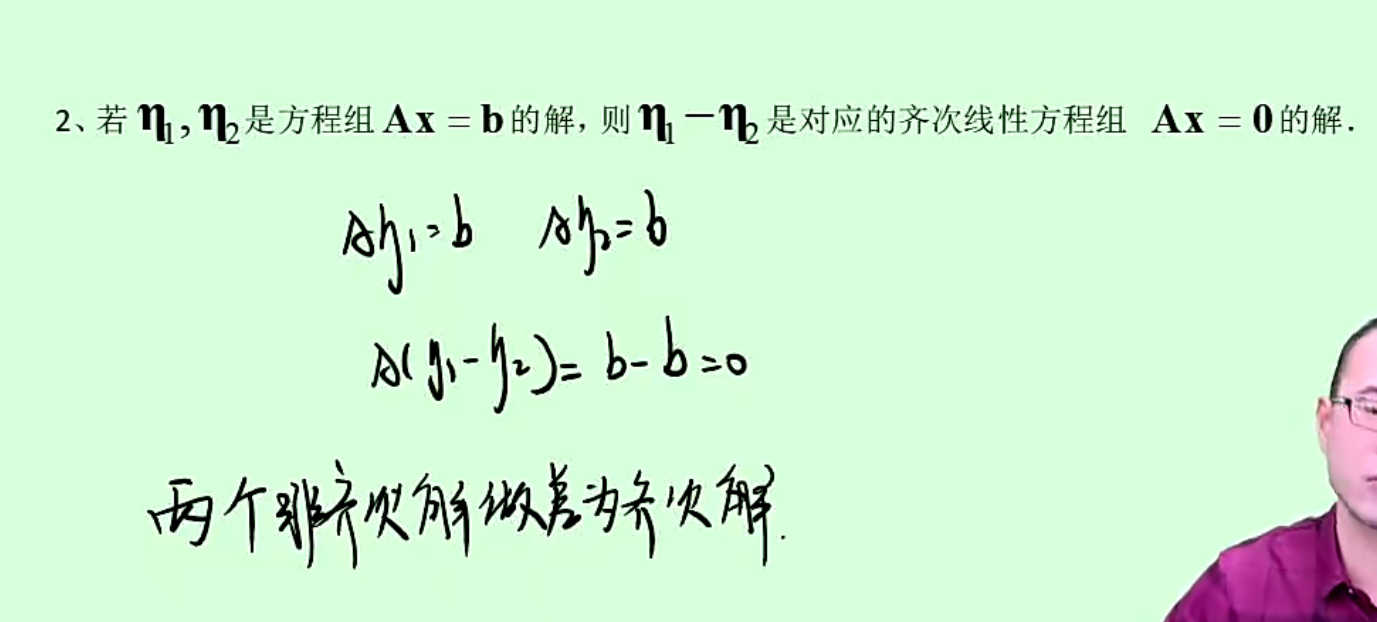 2、若 η₁, η₂ 是方程组 Ax = b 的解, 则 η₁ − η₂ 是对应的齐次线性方程组 Ax = 0 的解.
Aη₁ = b Aη₂ = b
A(η₁ - η₂) = b - b = 0
两个非齐次解做差为齐次解.